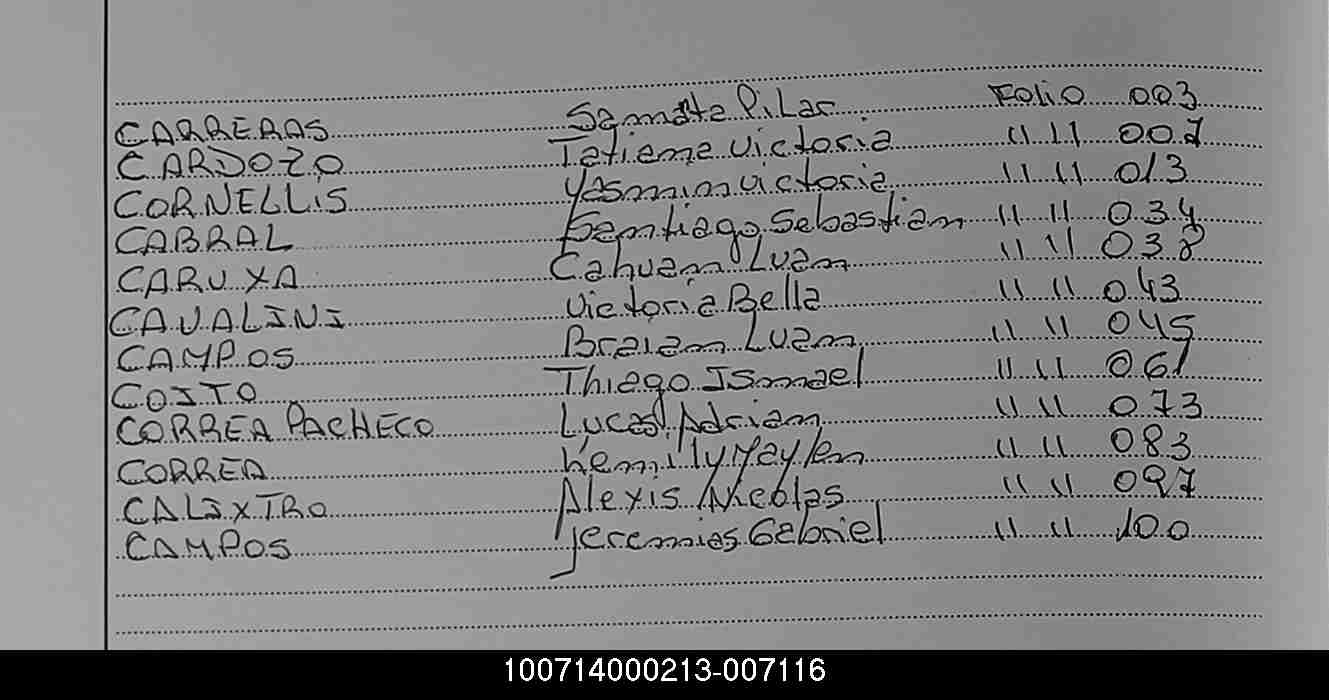 CARRERAS Samanta Pilar Folio 003
CARDOZO Tatiana Victoria " " 007
CORNELLIS Yasmin Victoria " " 013
CABRAL Santiago Sebastian " " 034
CARUXA Cahuan Luan " " 038
CAVALINI Victoria Bella " " 043
CAMPOS Braian Luan " " 045
COITO Thiago Ismael " " 061
CORREA PACHECO Lucas Adrian " " 073
CORREA Kemilly Maylen " " 083
CALIXTRO Alexis Nicolas " " 097
CAMPOS Jeremias Gabriel " " 100
100714000213-007116